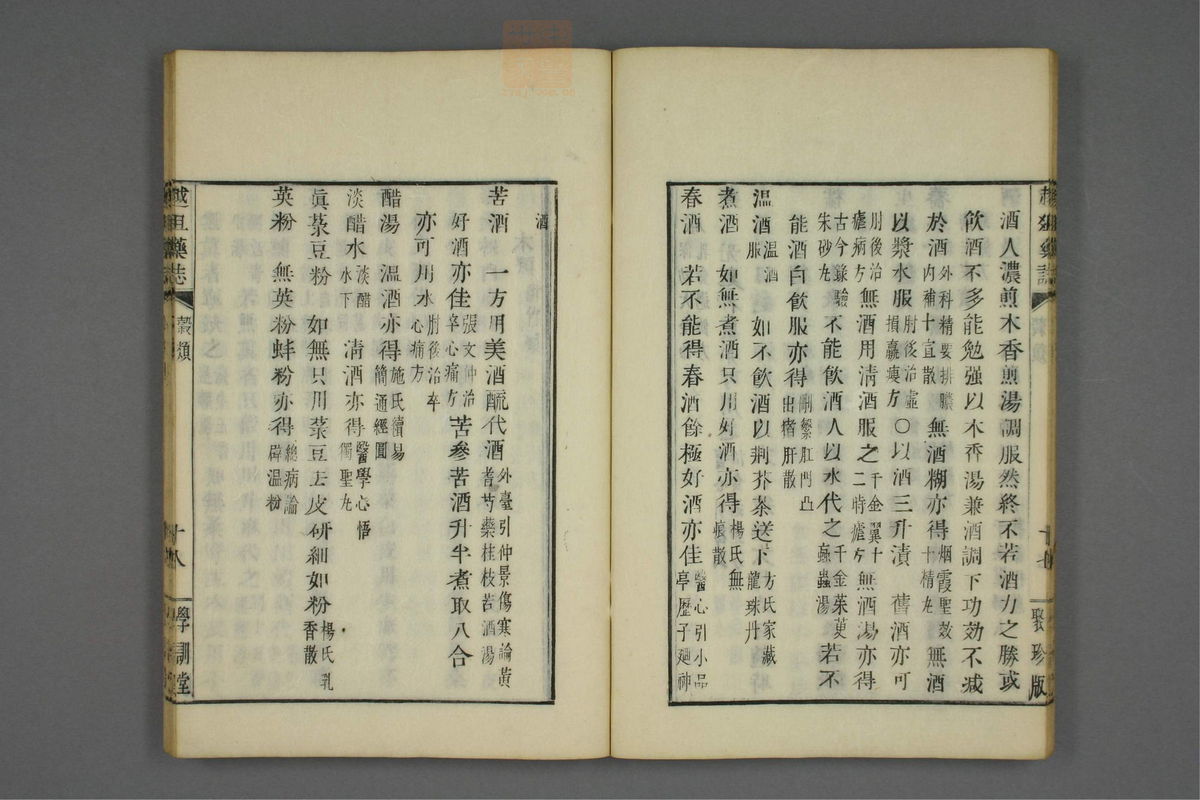 酒人濃煎木香煎湯調服然終不若酒力之勝或
飲酒不多能勉强以木香湯兼酒調下功効不减
於酒外科精要排膿內補十宣散 無酒糊亦得烟霞聖效十精丸 無酒
以漿水服肘後治虛損羸瘦方 〇以酒三升漬 舊酒亦可
肘後治瘧病方 無酒用淸酒服之千金翼十二時瘧方 無酒湯亦得
古今錄驗朱砂丸 不能飲酒人以水代之千金茱萸蝱蟲湯 若不
能酒白飲服亦得刪繁肛門凸出猪肝散
温酒温酒服 如不飲酒以荆芥茶送下方氏家藏龍珠丹
煮酒 如無煮酒只用好酒亦得楊氏無痕散
春酒 若不能得春酒餘極好酒亦佳醫心引小品亭歷子廻神
聚珍版
酒
苦酒 一方用美酒醯代酒外臺引仲景傷寒論黃耆芍藥桂枝苦酒湯
好酒亦佳張文仲治卒心痛方 苦參苦酒升半煮取八合
亦可用水肘後治卒心痛方
醋湯 温酒亦得施氏續易簡通經圓
淡醋水淡醋水下 淸酒亦得醫學心悟獨聖丸
眞菉豆粉 如無只用菉豆去皮研細如粉楊氏乳香散
英粉 無英粉蚌粉亦得總病論辟温粉
穀類
十八
學訓堂